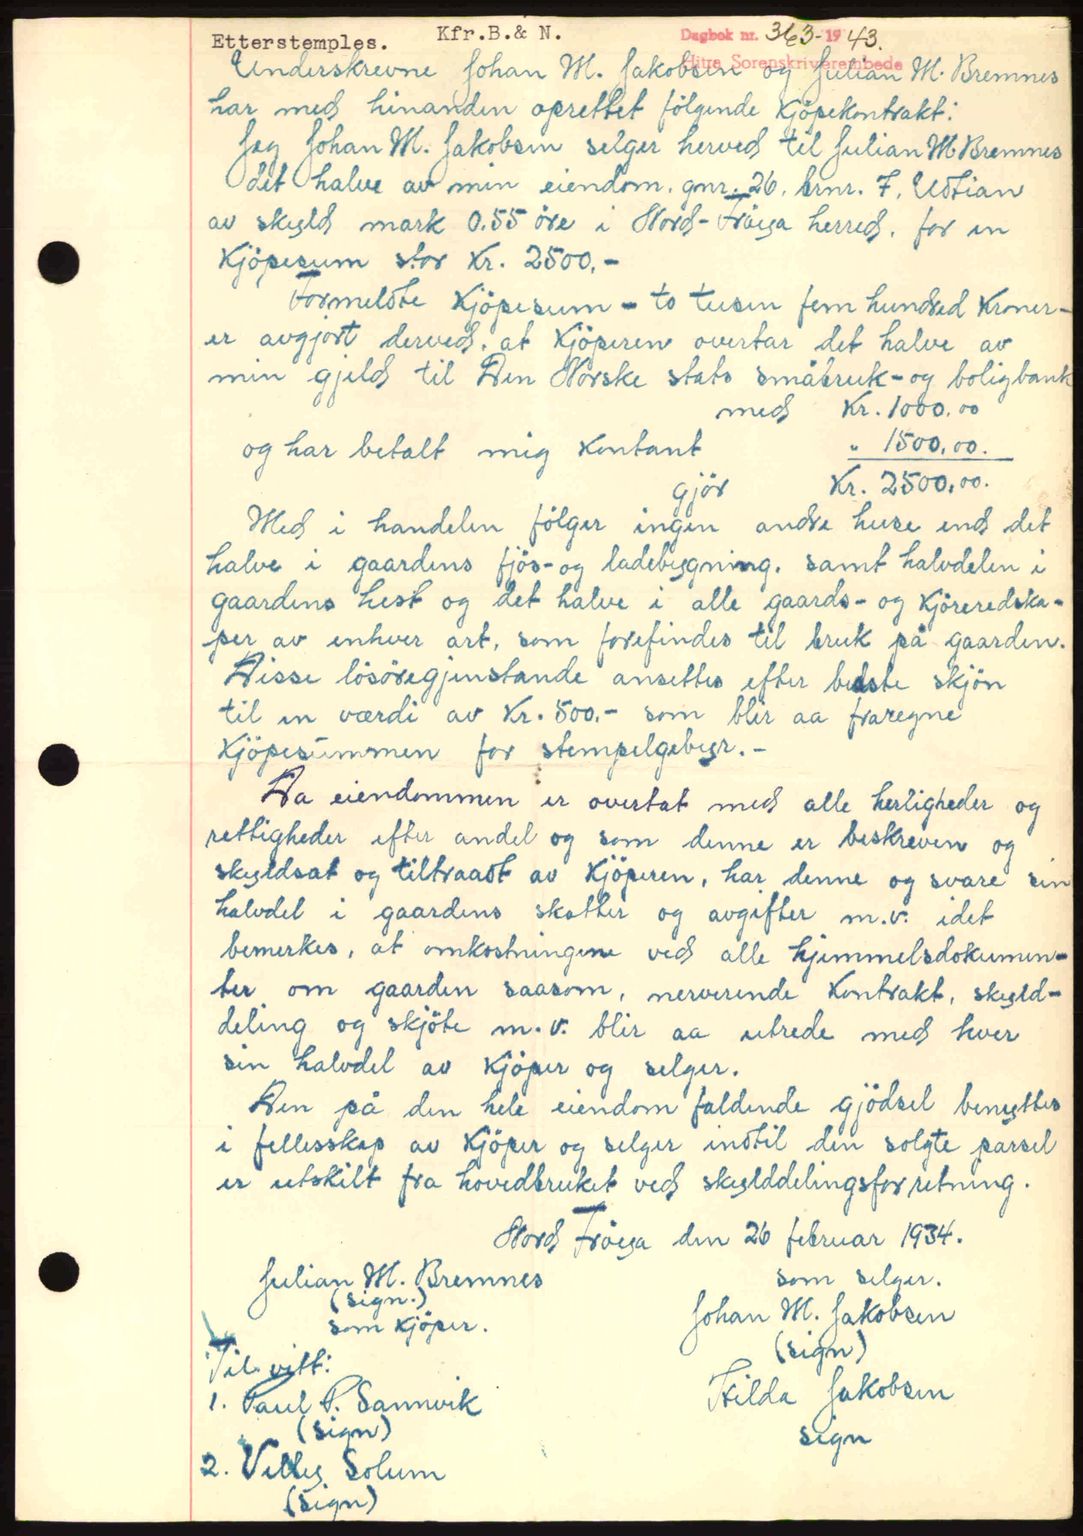 Etterstemples. Kfr.B.& N. Dagbok nr. 363-1943.
Hitra Sorenskriverembede
Underskrevne Johan M. Jakobsen og Julian M. Bremnes
har med hinanden oprettet følgende kjöpekontrakt:
Jeg Johan M. Jakobsen selger herved til Julian M Bremnes
det halve av min eiendom, gnr. 26, brnr. 7, Udtian
av skyld mark 0.55 öre i Nord-Fröya herred, for en
kjöpesum stor Kr. 2500,-
Formeldte kjöpesum - to tusen fem hundred kroner-
er avgjort derved, at kjöperen overtar det halve av
min gjeld til Den Norske stats småbruk- og boligbank
med Kr. 1000,00
og har betalt mig kontant " 1500,00.
gjör Kr. 2500,00.
Med i handelen fölger ingen andre huse end det
halve i gaardens fjös- og ladebygning, samt halvdelen i
gaardens hest og det halve i alle gaards- og kjöreredska-
per av enhver art, som forefindes til bruk på gaarden.
Disse lösöregjenstande ansettes efter bedste skjön
til en værdi av Kr. 500,- som blir aa fraregne
kjöpesummen for stempelgebyr.-
Da eiendommen er overtat med alle herligheder og
rettigheder efter andel og som denne er beskreven og
skyldsat og tiltraadt av kjöperen, har denne og svare sin
halvdel i gaardens skatter og avgifter m.v. idet
bemerkes, at omkostningene ved alle hjemmelsdokumen-
ter om gaarden saasom, nerverende kontrakt, skyld-
deling og skjöte m.v. blir aa utrede med hver
sin halvdel av kjöper og selger.
Den på den hele eiendom faldende gjödsel benyttes
i fellesskap av kjöper og selger indtil den solgte parsel
er utskilt fra hovedbruket ved skylddelingsforretning.
Nord Fröya den 26 februar 1934.
Julian M. Bremnes som selger.
(sign.) Johan M. Jakobsen
som kjöper. (sign)
Til vitt: Hilda Jakobsen
1. Paul P. Sannvik sign
(sign)
2. Villy Solum
(sign)